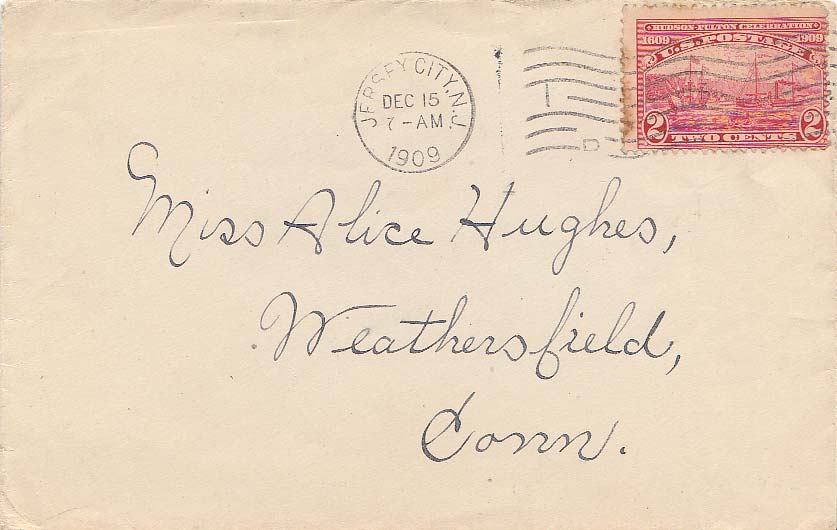 HUDSON-FULTON CELEBRATION
1609 1909
U.S. POSTAGE
2 2
TWO CENTS
JERSEY CITY, N.J.
DEC 15
7-AM
1909
I
D
Miss Alice Hughes,
Weathersfield,
Conn.